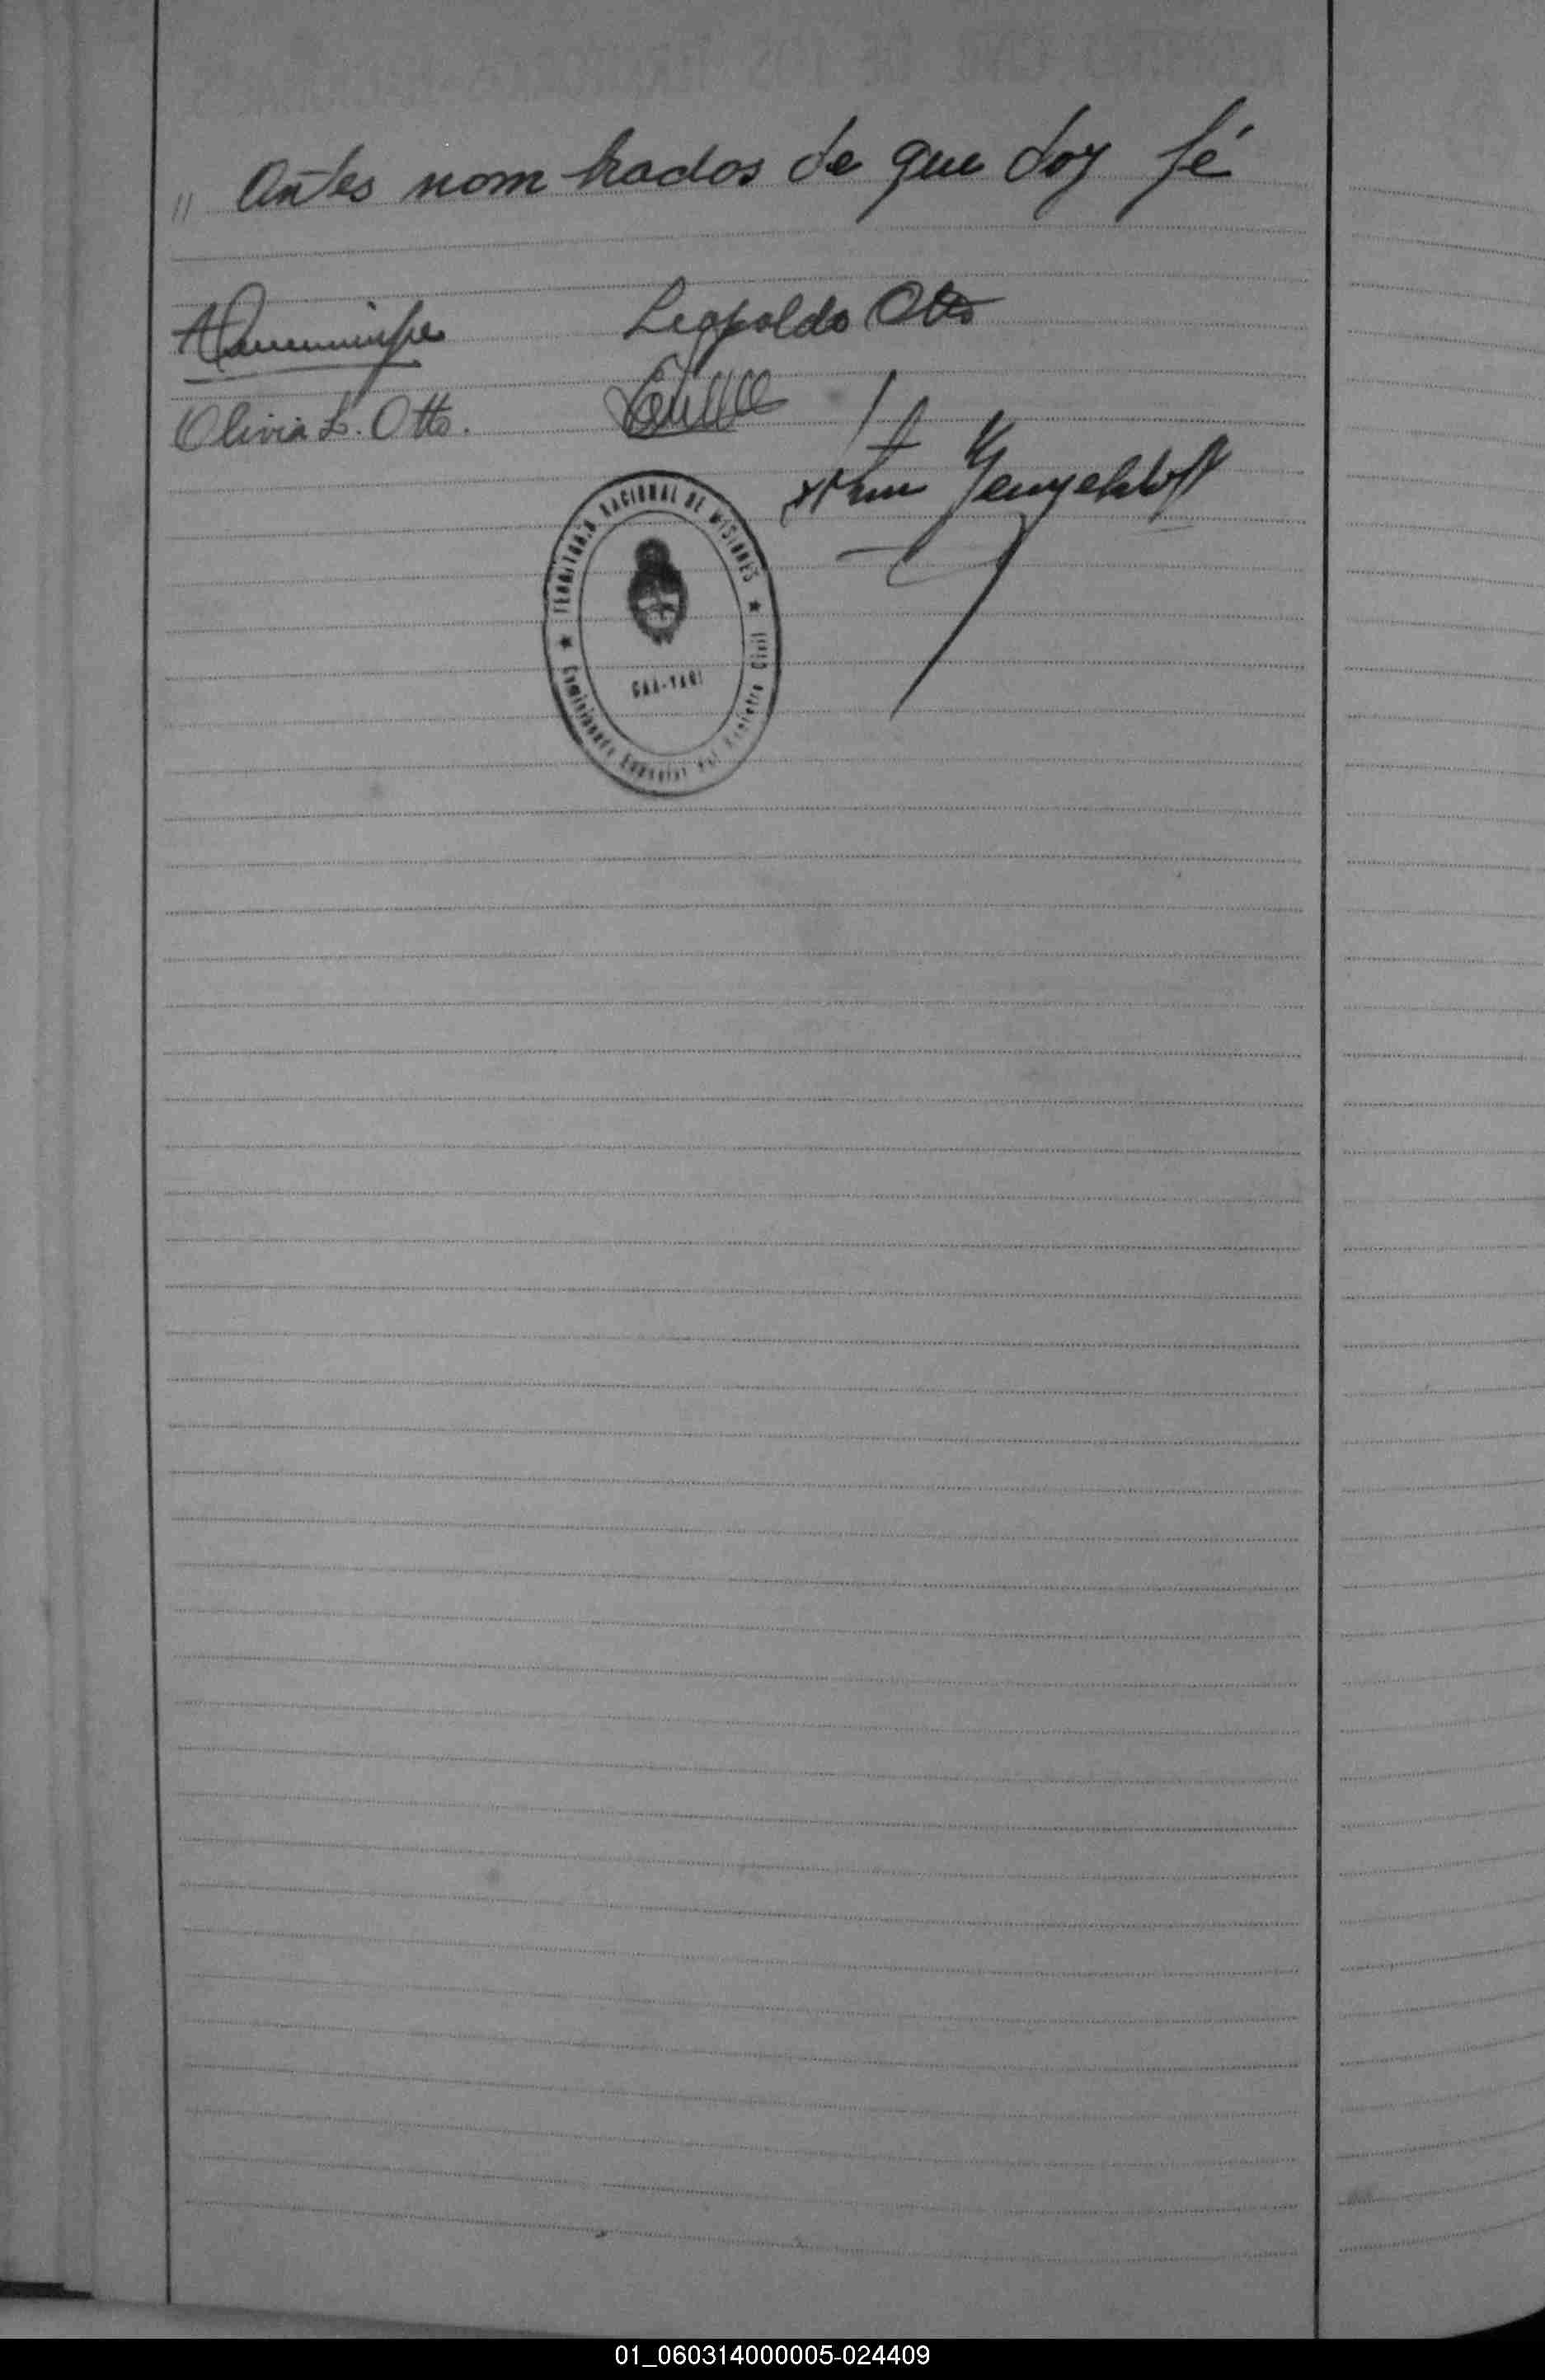 " Antes nombrados de que doy fé
Leopoldo Otto
Olivia L. Otto.
TERRITORIO NACIONAL DE MISIONES
CAA-YARI
Comisionado Especial del Registro Civil
01_060314000005-024409